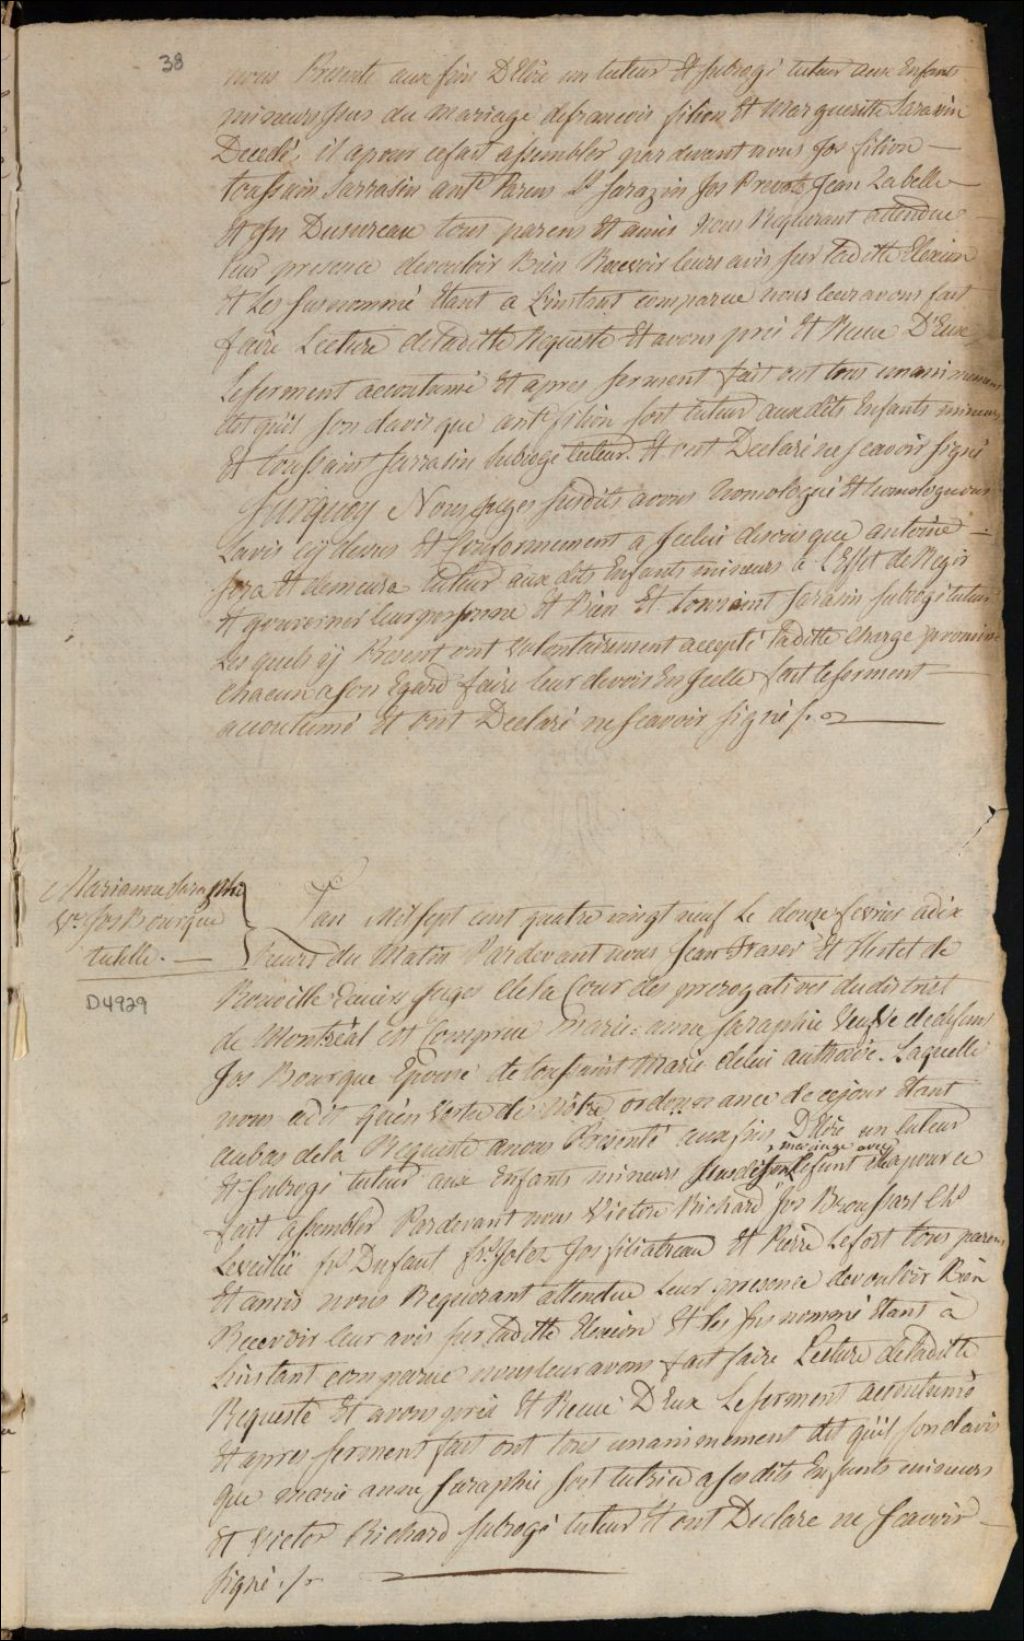 38
nous Presente aux fins D'Elire un tuteur Et subrogé tuteur aux Enfants
mineurs Jssus du mariage defrancois filion Et Marguerite Sarasin
Decedé, il apour cefait assembler par devant nous Jos filion —
toussain Sarrasin antne Parens St Sarazin Jos Prevots Jean Labelle —
Et Jn Dusureau tous parens Et amis Nous Requerant attendue —
leur presence devouloir Bien Recevoir leurs avis sur ladite Elexion
Et Les susnommé Etant a L'instant comparue nous leur avons fait
faire Lecture deladitte Requeste Et avons pris Et Recue D'Eux
Leserment accoutumé Et apres serment fait ont tous unanimement
dit quil son davis que antne filion soit tuteur aux dits Enfants mineurs
Et toussaint Sarrasin subrogé tuteur. Et ont Declaré ne scavoir signé
Surquoy Nous Juges susdits avons homologué Et homologuons
Lavis cÿ dessus Et Conformement a Jcelui disons que antoine —
sera Et demeura tuteur aux dits Enfants mineurs a L'Effet de Regir
Et gouverner leur personne Et Bien Et toussaint Sarasin subrogé tuteur
Les quels cÿ Present ont Volontairement accepté ladite charge promis
chacun a son Egard faire leur devoir En Jcelle fait le serment —
accoutumé Et ont Declaré ne scavoir signé ./.
Marianne Saraphie
Ve Jos Bourque
tutelle. —
D4929
Lan Mil sept cent quatre vingt neuf Le douze fevrier a dix
heures du Matin Pardevant nous Jean Fraser Et Hertel de
Rouville Ecuiers Juges dela Cour des prerogatives du district
de Montréal Est Comparue Marie-anne Saraphie Veuve de defunt
Jos Bourque Epouse de toussaint Marie delui authorisé. Laquelle
nous adit quen Vertu de Nôtre ordonnance de cejour Etant
aubas dela Requeste anous Presenté aux fins D'Elire un tuteur
mariage avec
Et subrogé tuteur aux Enfants mineurs Jssus deson Lefunt Ella pour ce
fait assembler Pardevant nous Victor Richard Jos Broussart Chs
Leveillé frs Dufaut frs Jolez Jos filiatreau Et Pierre Lefort tous parens
Et amis nous Requerant attendue Leur presence devouloir Bien
Recevoir leur avis sur ladite Elexion Et les susnommé Etant à
Linstant comparue nous leur avons fait faire Lecture deladitte
Requeste Et avons pris Et Recue D'Eux Leserment accoutumé
Et apres serment fait ont tous unanimement dit quil son davis
que marie anne Saraphie soit tutrice a ses dits Enfants mineurs
Et Victor Richard subrogé tuteur Et ont Declare ne scavoir —
signé ./.